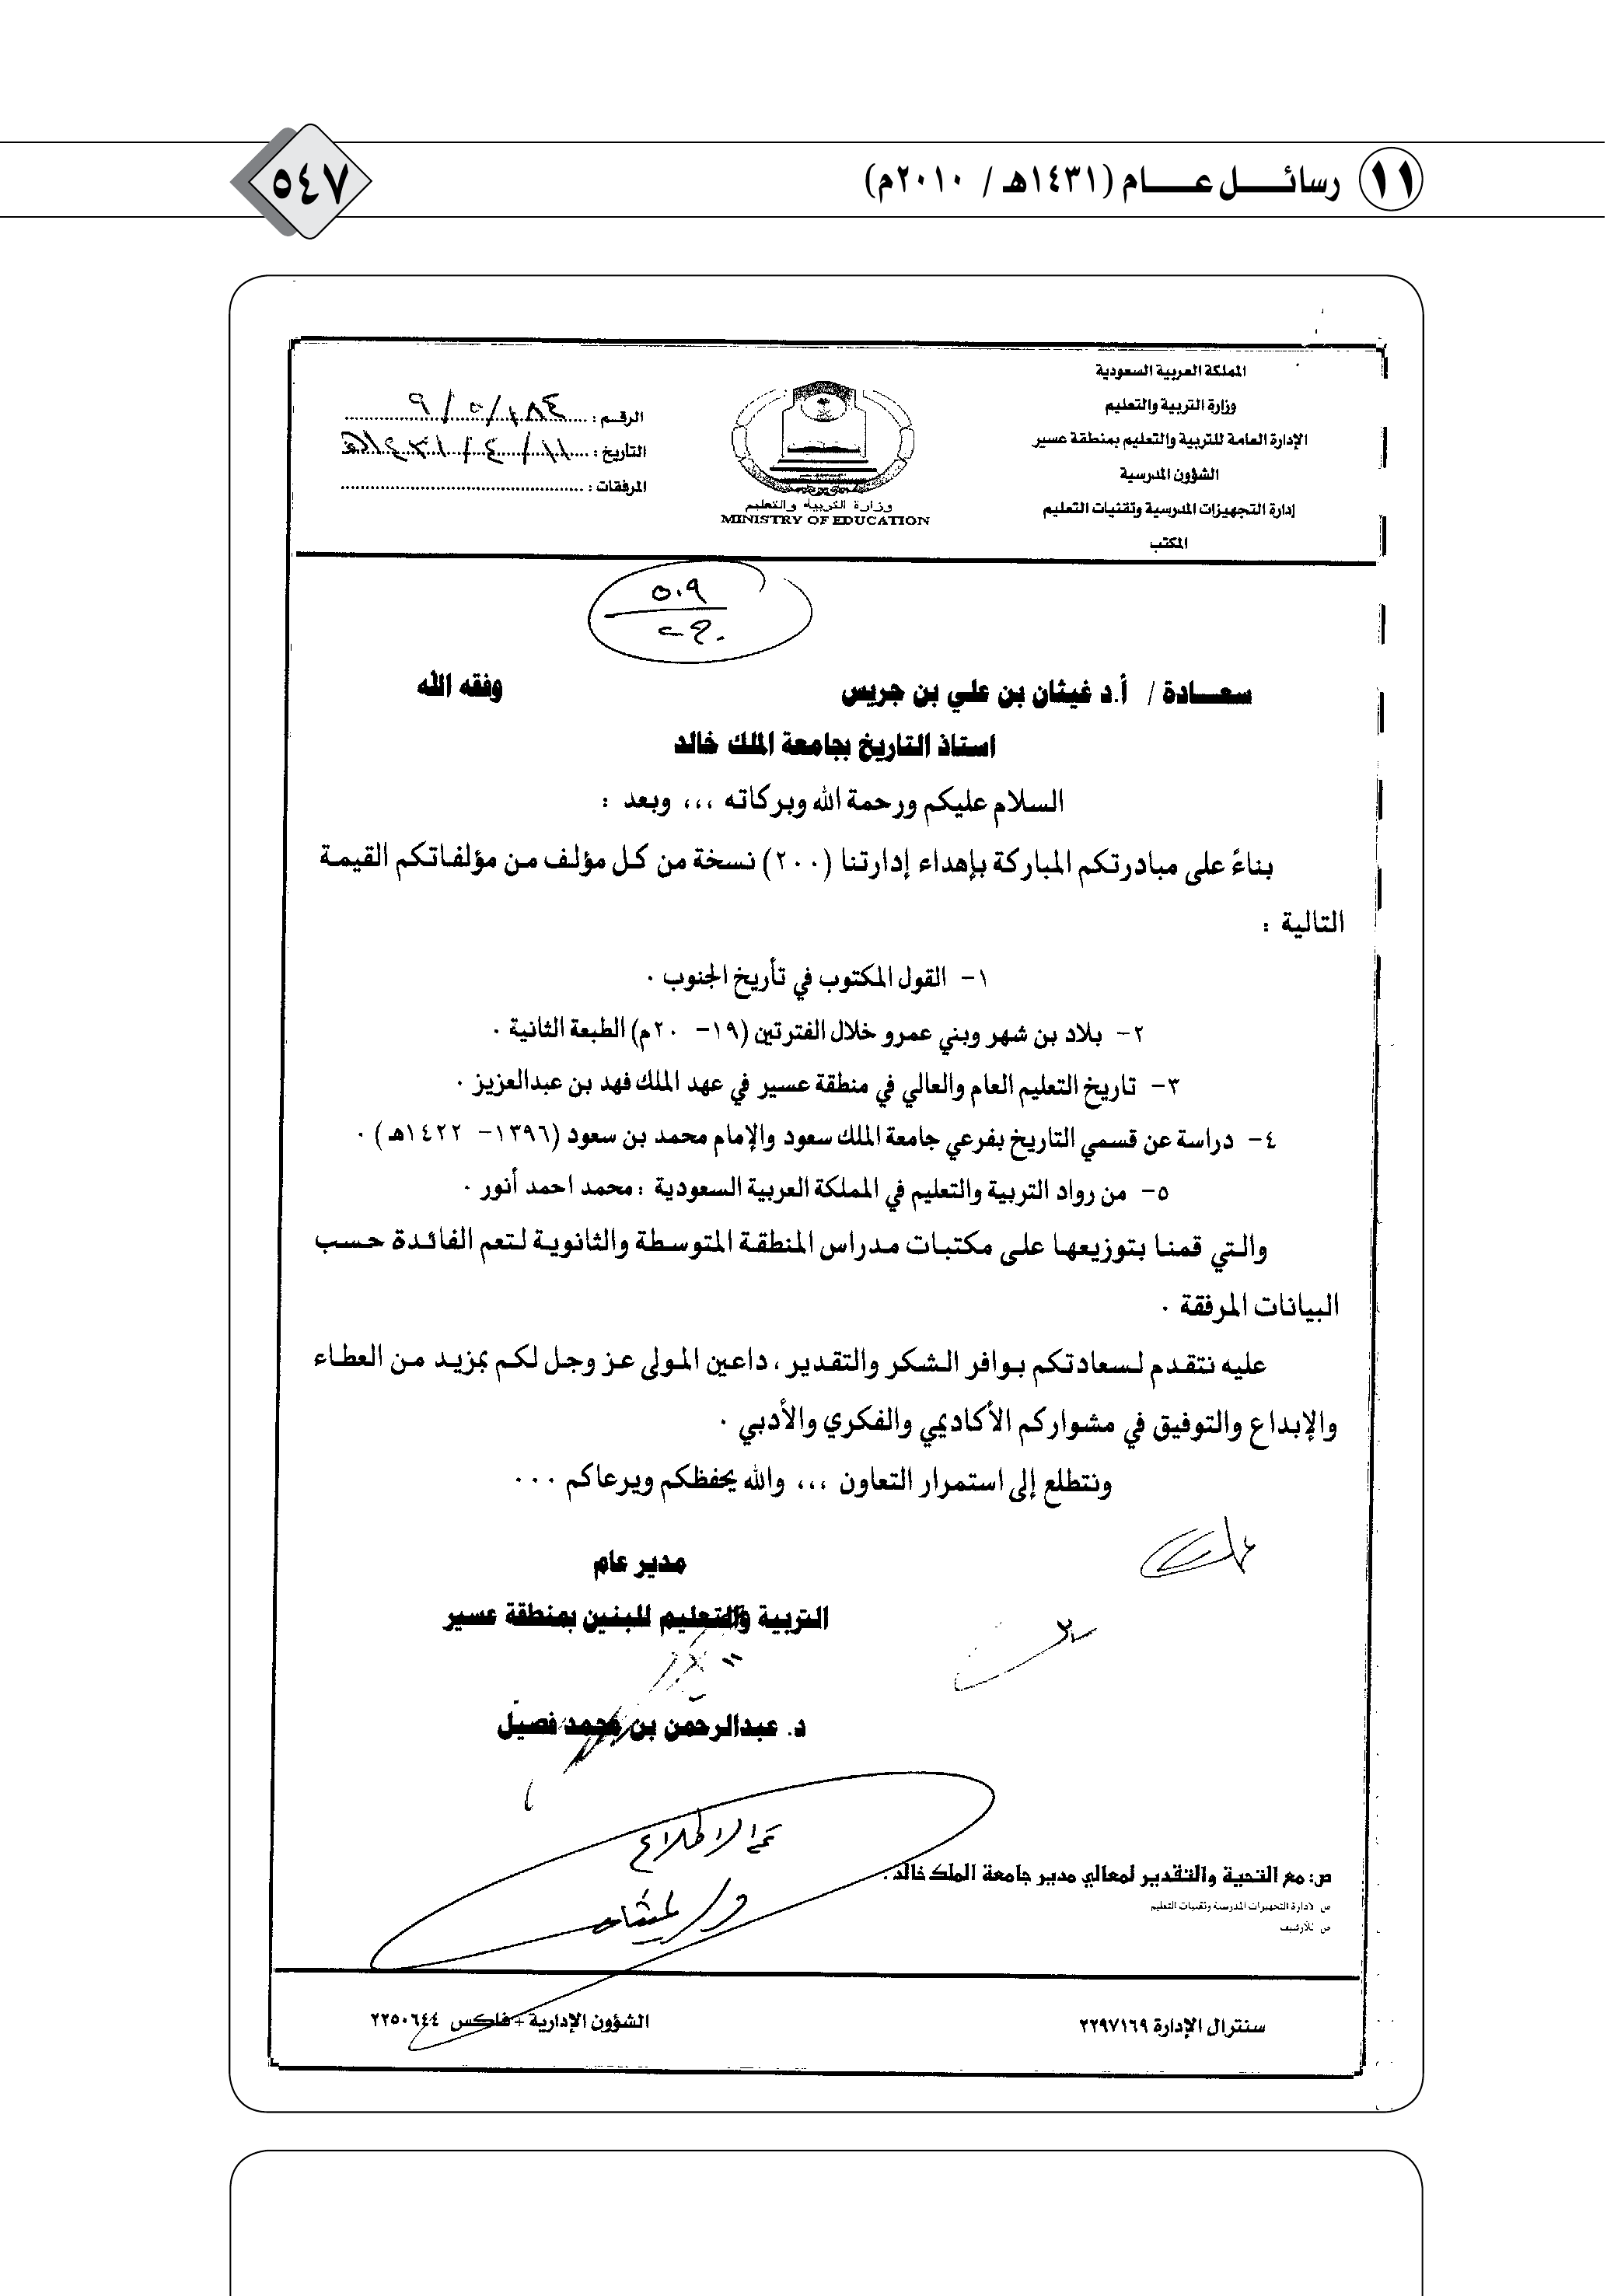 ١١ رسائـــــل عـــــــام (١٤٣١هـ / ٢٠١٠م)
٥٤٧
المملكة العربية السعودية
وزارة التربية والتعليم
الإدارة العامة للتربية والتعليم بمنطقة عسير
الشؤون المدرسية
إدارة التجهيزات المدرسية وتقنيات التعليم
المكتب
وزارة التربية والتعليم
MINISTRY OF EDUCATION
الرقــم :
التأريخ :
المرفقات :
٥٠٩
سعـــادة / أ.د غيثان بن علي بن جريس وفقه الله
استاذ التاريخ بجامعة الملك خالد
السلام عليكم ورحمة الله وبركاته ،،، وبعد :
بناءً على مبادرتكم المباركة بإهداء إدارتنا (٢٠٠) نسخة من كل مؤلف من مؤلفاتكم القيمة
التالية :
١- القول المكتوب في تأريخ الجنوب .
٢- بلاد بن شهر وبني عمرو خلال الفترتين (١٩- ٢٠م) الطبعة الثانية .
٣- تاريخ التعليم العام والعالي في منطقة عسير في عهد الملك فهد بن عبدالعزيز .
٤- دراسة عن قسمي التاريخ بفرعي جامعة الملك سعود والإمام محمد بن سعود (١٣٩٦- ١٤٢٢هـ ) .
٥- من رواد التربية والتعليم في المملكة العربية السعودية : محمد احمد أنور .
والتي قمنا بتوزيعها على مكتبات مدارس المنطقة المتوسطة والثانوية لتعم الفائدة حسب
البيانات المرفقة .
عليه نتقدم لسعادتكم بوافر الشكر والتقدير ، داعين المولى عز وجل لكم بمزيد من العطاء
والإبداع والتوفيق في مشواركم الأكاديمي والفكري والأدبي .
ونتطلع إلى استمرار التعاون ،،، والله يحفظكم ويرعاكم ...
مدير عام
التربية والتعليم للبنين بمنطقة عسير
د. عبدالرحمن بن محمد فصيل
تم الاطلاع
ص: مع التحية والتقدير لمعالي مدير جامعة الملك خالد .
ص لإدارة التجهيزات المدرسية وتقنيات التعليم
ص للأرشيف
سنترال الإدارة ٢٢٩٧١٦٩
الشؤون الإدارية + فاكس ٢٢٥٠٦٤٤